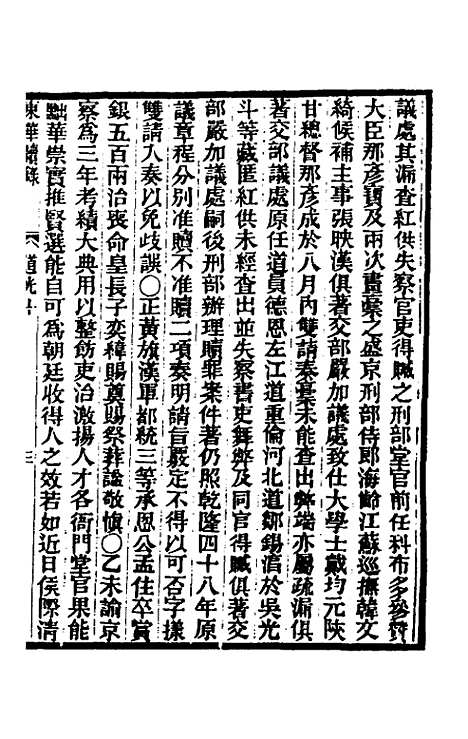 議處其漏查紅供失察官吏得贓之刑部堂官前任科布多參贊
大臣那彥寶及兩次畫稾之盛京刑部侍郎海齡江蘇巡撫韓文
綺候補主事張映漢俱著交部嚴加議處致仕大學士戴均元陝
甘總督那彥成於八月內雙請奏稾未能查出弊端亦屬疏漏俱
著交部議處原任道員德恩左江道重倫河北道鄒錫淳於吳光
斗等藏匿紅供未經查出並失察書吏舞弊及同官得贓俱著交
部嚴加議處嗣後刑部辦理贖罪案件著仍照乾隆四十八年原
議章程分別准贖不准贖二項奏明請旨嚴定不得以可否字樣
雙請入奏以免歧誤〇正黃旗漢軍都統三等承恩公孟住卒賞
銀五百兩治喪命皇長子奕緯賜奠賜祭葬諡敬愼〇乙未諭京
察爲三年考績大典用以整飭吏治激揚人才各衙門堂官果能
黜華崇實推賢選能自可爲朝廷收得人之效若如近日侯際清
東華續錄 道光 三